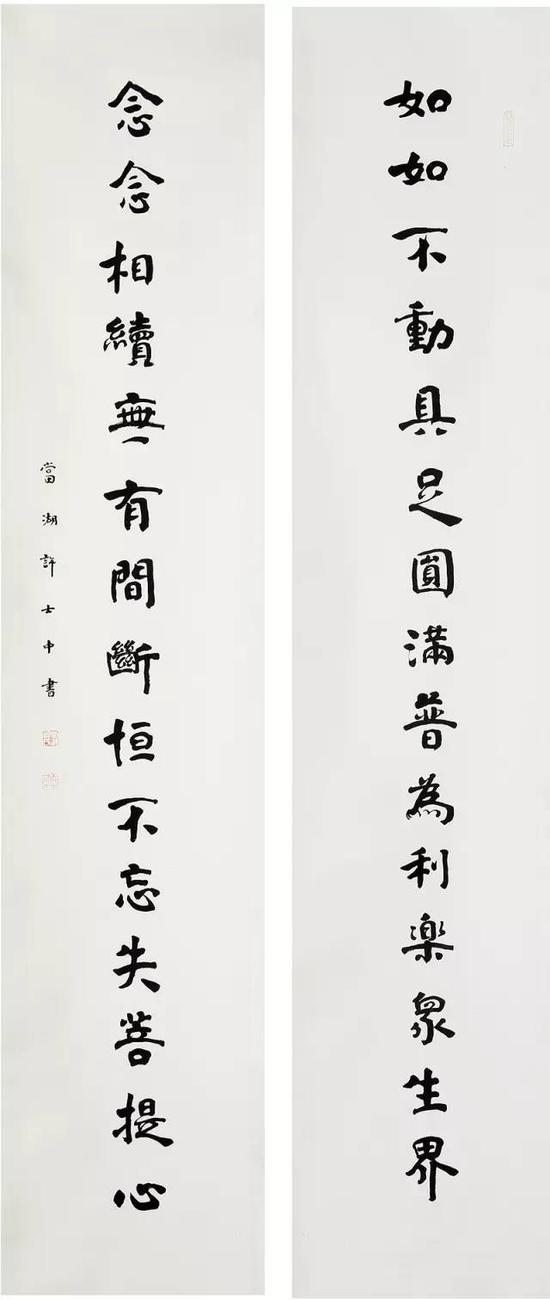 如如不動具足圓滿普為利樂眾生界
念念相續無有間斷恒不忘失菩提心
當湖許士中書